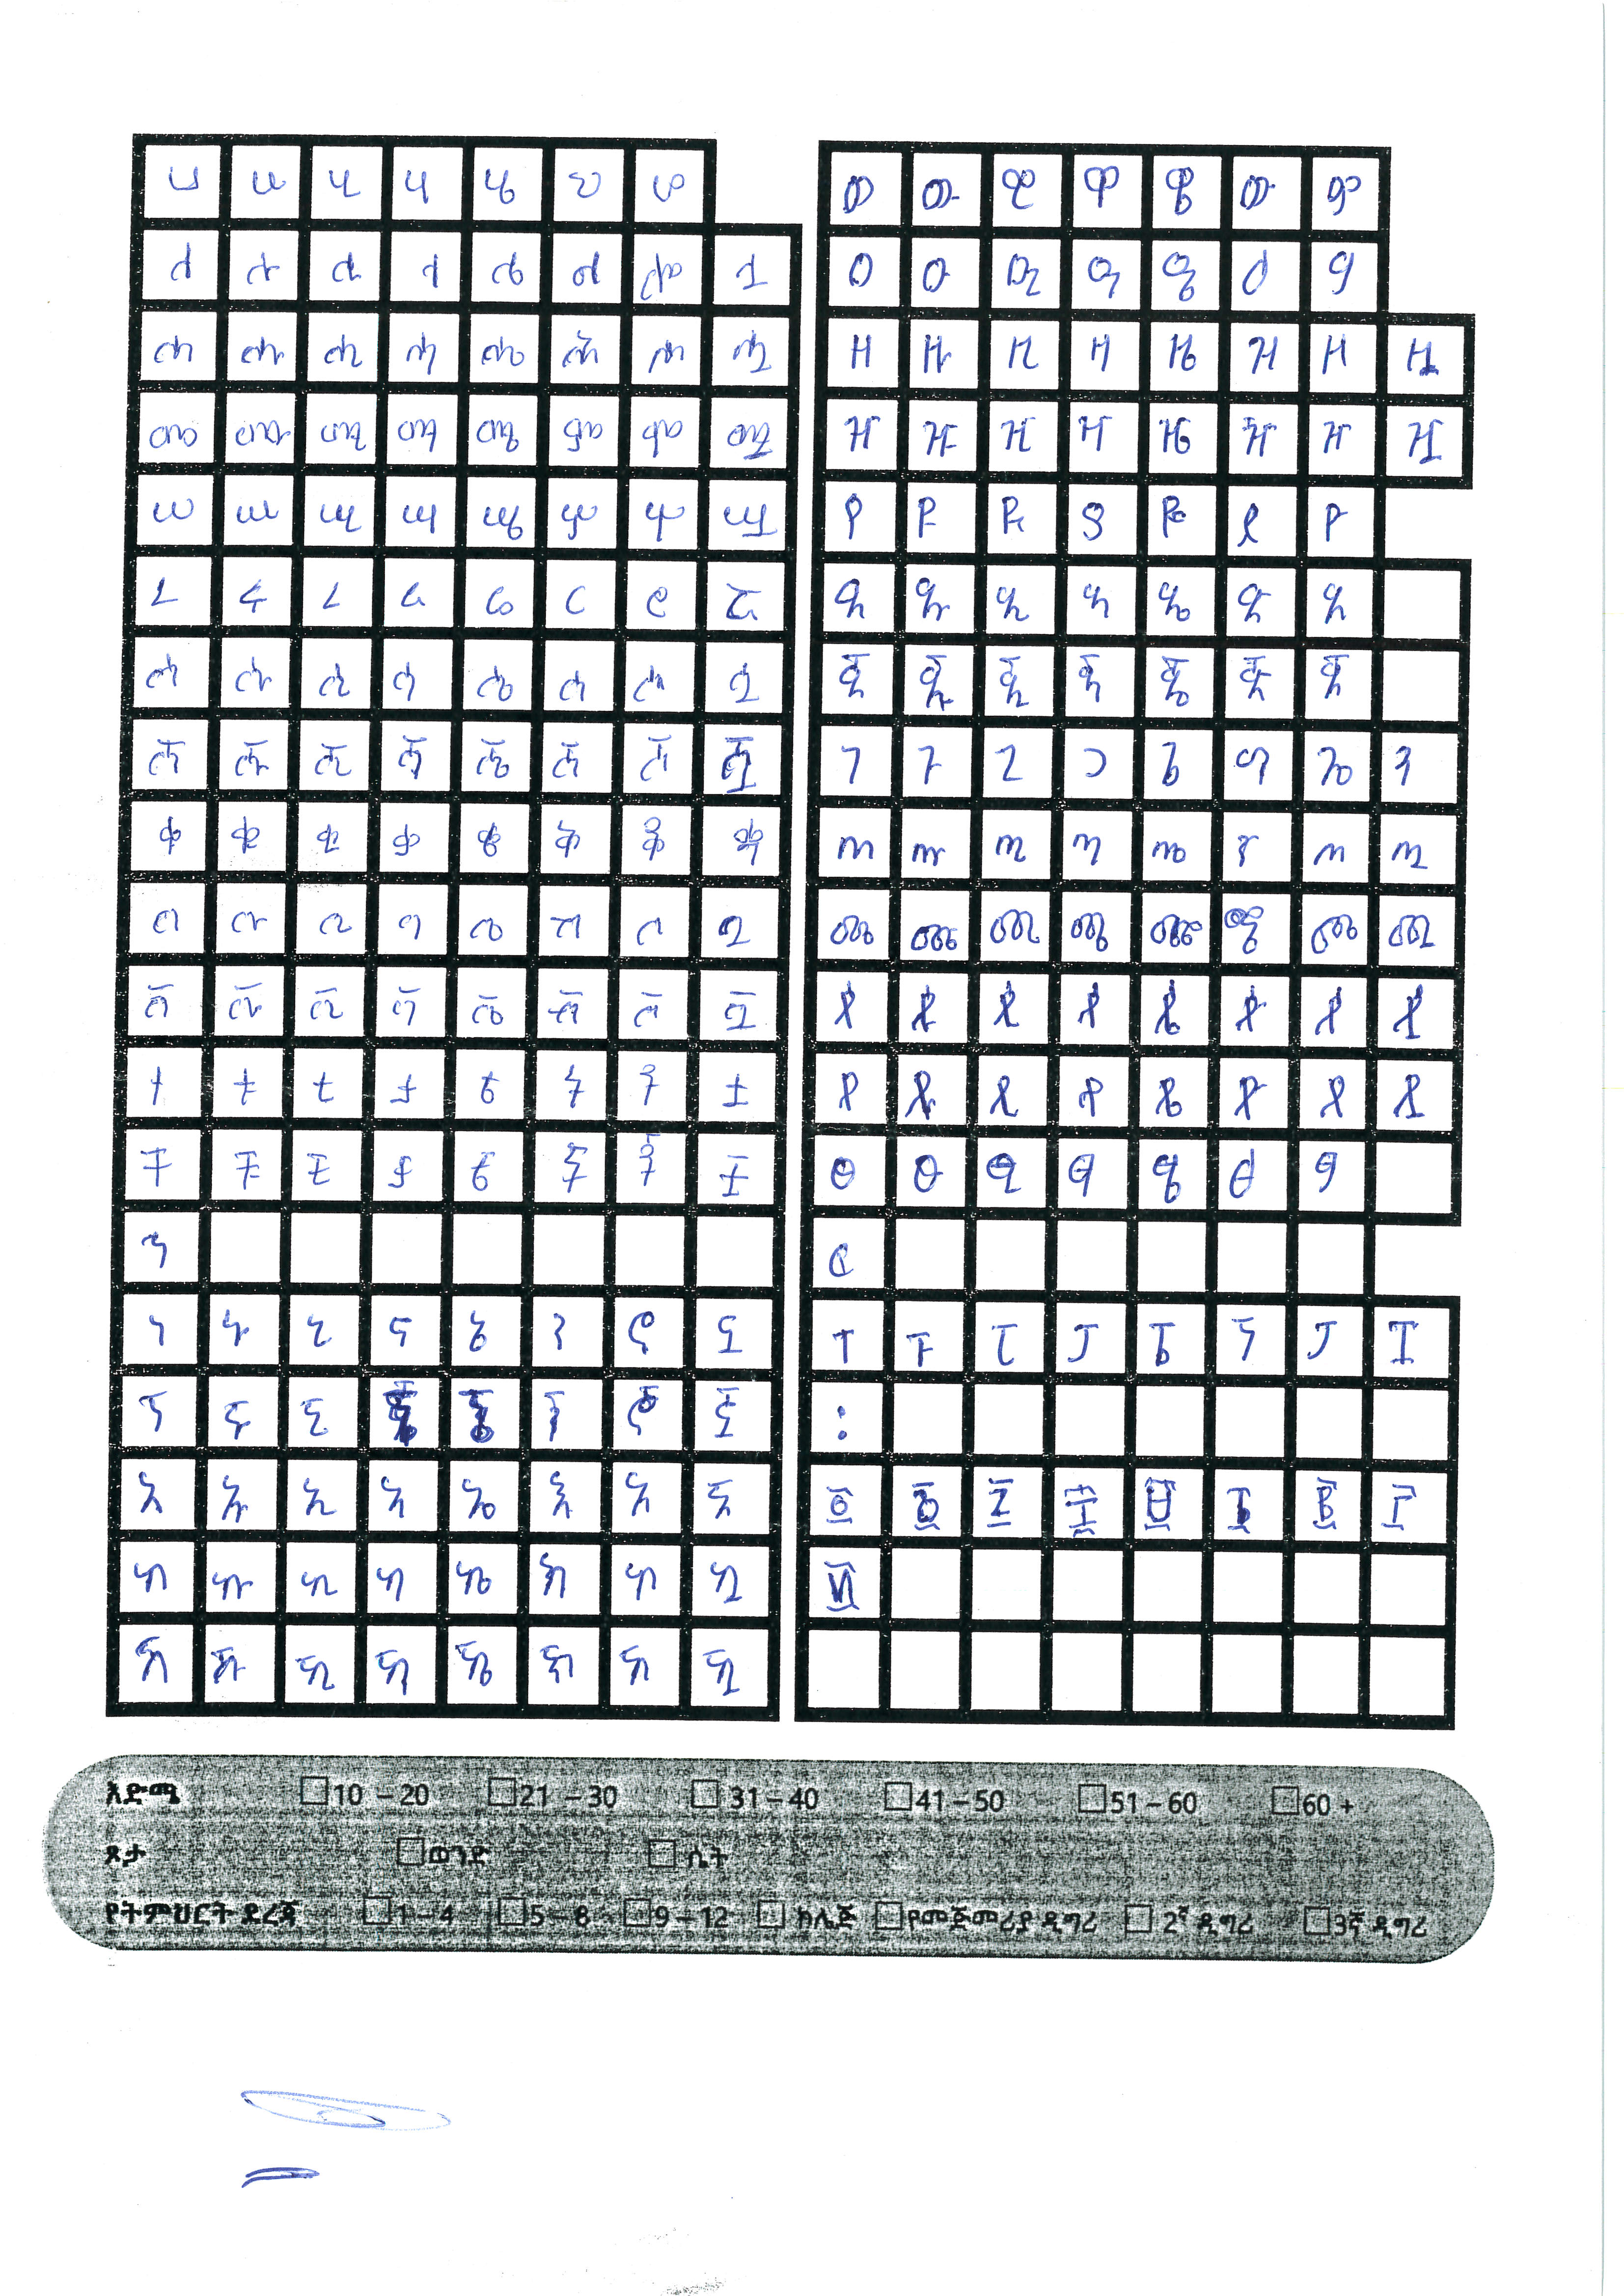 ሀ ሁ ሂ ሃ ሄ ህ ሆ
ለ ሉ ሊ ላ ሌ ል ሎ ሏ
ሐ ሑ ሒ ሓ ሔ ሕ ሖ ሗ
መ ሙ ሚ ማ ሜ ም ሞ ሟ
ሠ ሡ ሢ ሣ ሤ ሥ ሦ ሧ
ረ ሩ ሪ ራ ሬ ር ሮ ሯ
ሰ ሱ ሲ ሳ ሴ ስ ሶ ሷ
ሸ ሹ ሺ ሻ ሼ ሽ ሾ ሿ
ቀ ቁ ቂ ቃ ቄ ቅ ቆ ቋ
በ ቡ ቢ ባ ቤ ብ ቦ ቧ
ቨ ቩ ቪ ቫ ቬ ቭ ቮ ቯ
ተ ቱ ቲ ታ ቴ ት ቶ ቷ
ቸ ቹ ቺ ቻ ቼ ች ቾ ቿ
ኃ
ነ ኑ ኒ ና ኔ ን ኖ ኗ
ኘ ኙ ኚ ኛ ኜ ኝ ኞ ኟ
አ ኡ ኢ ኣ ኤ እ ኦ ኧ
ከ ኩ ኪ ካ ኬ ክ ኮ ኳ
ኸ ኹ ኺ ኻ ኼ ኽ ኾ ዃ
ወ ዉ ዊ ዋ ዌ ው ዎ
ዐ ዑ ዒ ዓ ዔ ዕ ዖ
ዘ ዙ ዚ ዛ ዜ ዝ ዞ ዟ
ዠ ዡ ዢ ዣ ዤ ዥ ዦ ዧ
የ ዩ ዪ ያ ዬ ይ ዮ
ደ ዱ ዲ ዳ ዴ ድ ዶ
ጀ ጁ ጂ ጃ ጄ ጅ ጆ
ገ ጉ ጊ ጋ ጌ ግ ጎ ጓ
ጠ ጡ ጢ ጣ ጤ ጥ ጦ ጧ
ጨ ጩ ጪ ጫ ጬ ጭ ጮ ጯ
ጰ ጱ ጲ ጳ ጴ ጵ ጶ ጷ
ጸ ጹ ጺ ጻ ጼ ጽ ጾ ጿ
ፀ ፁ ፂ ፃ ፄ ፅ ፆ
ፈ
ፐ ፑ ፒ ፓ ፔ ፕ ፖ ፗ
፡
እድሜ 10 – 20 21 – 30 31 – 40 41 – 50 51 – 60 60 +
ጾታ ወንድ ሴት
የትምህርት ደረጃ 1 – 4 5 – 8 9 – 12 ኮሌጅ የመጀመሪያ ዲግሪ 2ኛ ዲግሪ 3ኛ ዲግሪ